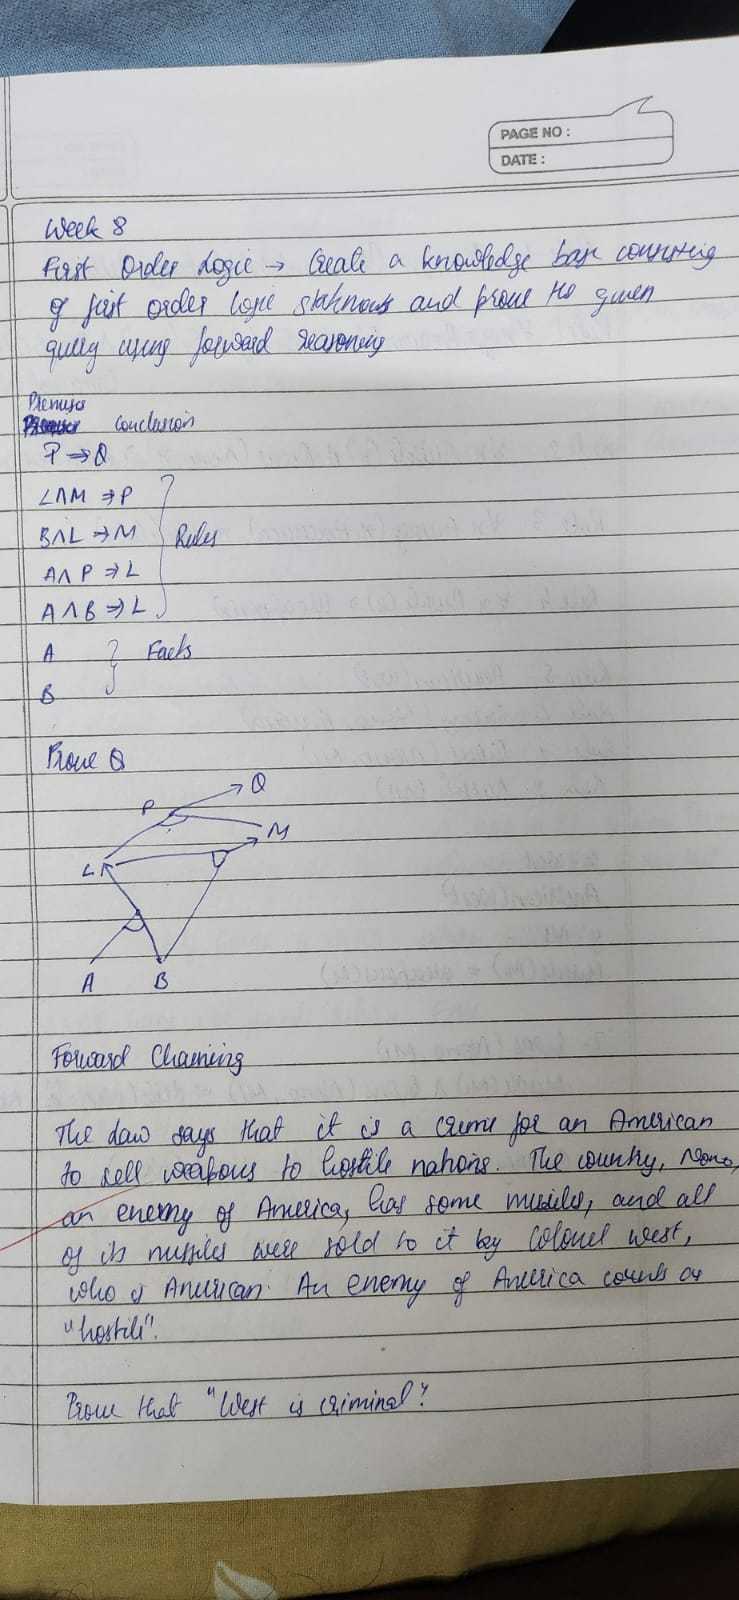 PAGE NO :
DATE :
Week 8
First Order Logic → Create a knowledge base consisting
of first order logic statements and prove the given
query using forward reasoning
Premises
Conclusion
P ⇒ Q
L∧M ⇒ P
B∧L ⇒ M } Rules
A∧P ⇒ L
A∧B ⇒ L
A } Facts
B
Prove Q
Q
P
M
L
A B
Forward Chaining
The law says that it is a crime for an American
to sell weapons to hostile nations. The country, Nono,
an enemy of America, has some missiles, and all
of its missiles were sold to it by Colonel West,
who is American. An enemy of America counts as
"hostile".
Prove that "West is criminal"